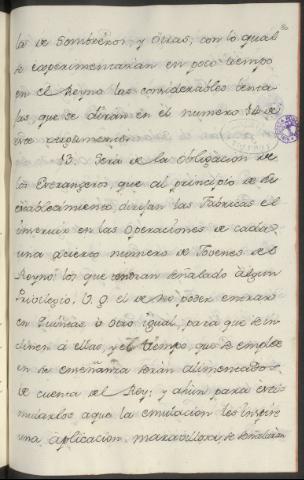 la de Sombreros, y otras; con lo qual
se experimentarian en poco tiempo
en el Reyno las considerables venta
jas, que se diran en el numero 54 de
este reglamento.
53. Será de la obligacion de
los Estrangeros, que al principio de su
establecimiento dirijan las Fabricas el
instruir en las Operaciones de cada
una a cierto numero de Jovenes del
Reyno, los que tendran señalado algun
Privilegio, V. g. el de no poder entrar
en Quintas, ù otro igual, para que se in
clinen à ellas, y el tiempo, que se emplee
en su enseñanza seran alimentados
de cuenta del Rey; y ahun para esti
mularlos a que la emulacion les inspire
una aplicacion maravillosa, se señalaran